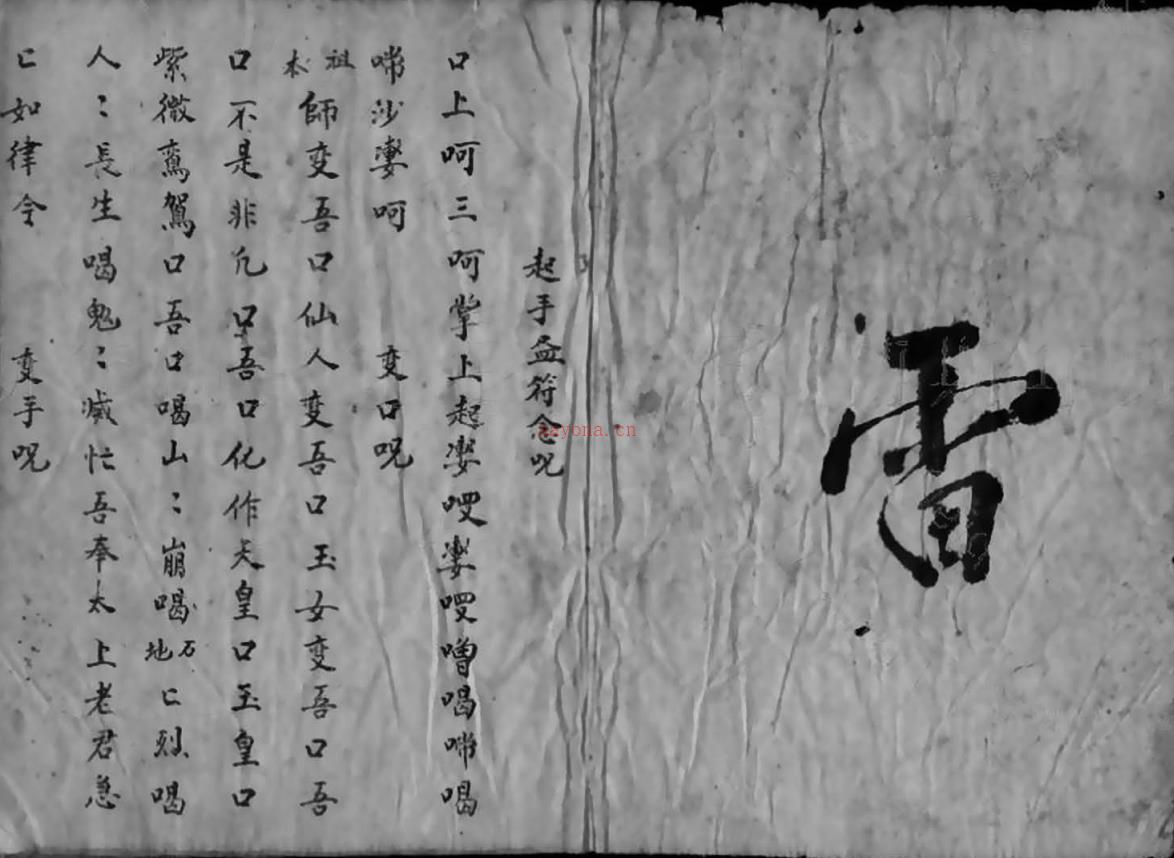 雷
起手盆符念呪
口上呵三呵掌上起娑哩娑哩嚕喝啼喝
啼沙娑呵 变口呪
祖本師变吾口仙人变吾口玉女变吾口吾
口不是非凡口吾口化作天皇口玉皇口
紫微鸞駕口吾口喝山〻崩喝石地匕烈喝
人〻長生喝鬼〻滅忙吾奉太上老君急
匕如律令 变手呪
kayona.cn